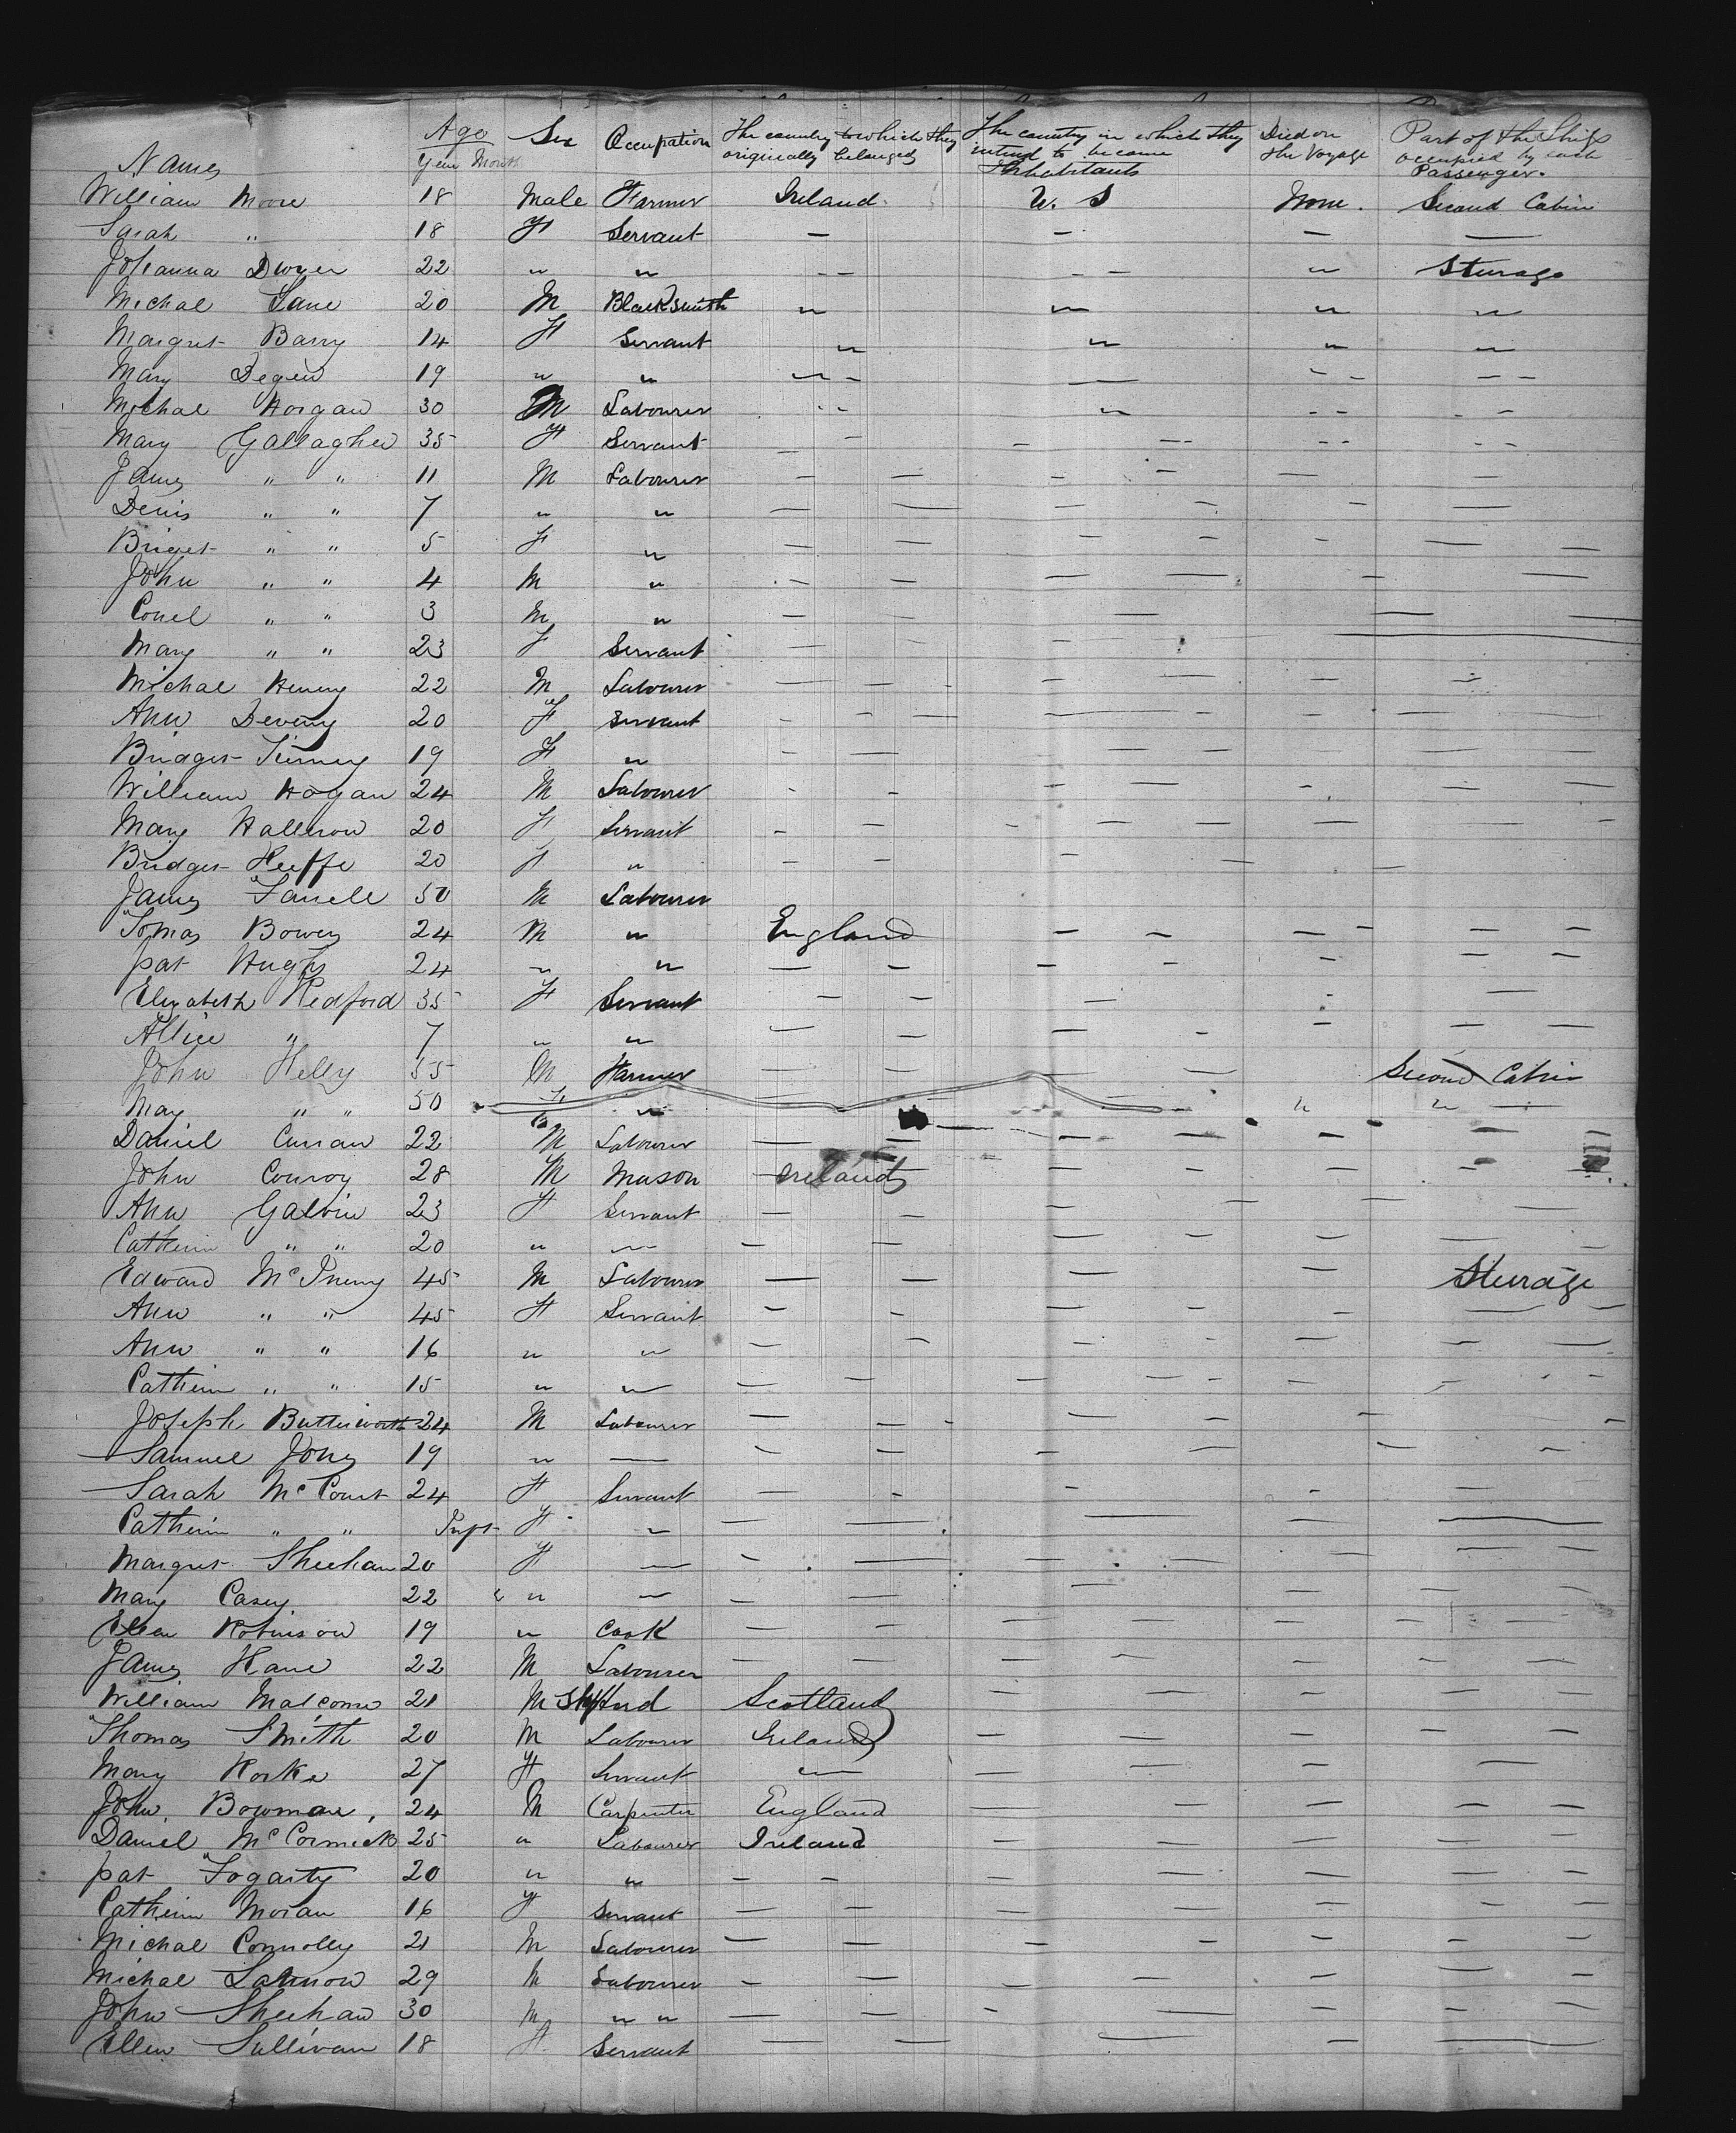 Names Age Year Month Sex Occupation The country to which they originally belonged The country in which they intend to become Inhabitants Died on the Voyage Part of the Ship occupied by each Passenger.
William Moore 18 Male Farmer Ireland U. S None. Second Cabin
Sarah " 18 F Servant — — — —
Johanna Dwyer 22 " " - - - - " Sturage
Michal Lane 20 M Blacksmith " " " "
Margret Barry 14 F Servant " " " "
Mary Degen 19 " " " - — - - - -
Michal Horgan 30 M Labourer - - " - - - -
Mary Gallagher 35 F Servant — — - - - - -
James " " 11 M Labourer — — — — — —
Denis " " 7 " " — — — — — —
Briget " " 5 F " — — — — — — —
John " " 4 M " — — — — — —
Conel " " 3 M " — — — —
Mary " " 23 F Servant — — — —
Michal Heney 22 M Labourer — — — — — —
Ann Deveny 20 F Servant — — — — — —
Bridget Tierney 19 F " — — — — — —
William Hogan 24 M Labourer - - — — - — —
Mary Halleron 20 F Servant — — — — — — —
Bridget Keffe 20 F " — — — — —
James Farrell 50 M Labourer
Tomas Bowen 24 M " England — — — — — —
pat Hughs 24 " " — — — — — — —
Elizabeth Redford 35 F Servant — — — —
Allice " 7 " " — — — — — —
John Kelly 55 M Farmer — — — — Second Cabin
May " " 50 F " — — " " —
Daniel Curran 22 M Labourer — — — — — —
John Conroy 28 M Mason Ireland — — — — —
Ann Galvin 23 F Servant — — — — — —
Catherin " " 20 " " — — — — — — —
Edward McIneny 45 M Labourer — — — — — Sturage
Ann " " 45 F Servant — — — — — — —
Ann " " 16 " " — — — — — — —
Catherin " " 15 " " — — — — — — —
Joseph Butterworth 24 M Labourer — — — — — —
Samuel Jones 19 " — — — — — — —
Sarah McCourt 24 F Servant — — — — —
Catherin " " Inft F " — — — — — —
Margret Sheehan 20 F — — — — — — — —
Mary Casey 22 " — — — — — — —
Ellen Robinson 19 " Cook — — — — — — —
James Kane 22 M Labourer — — — — — — —
William Malcome 21 M Shepherd Scotland — — — — —
Thomas Smith 20 M Labourer Ireland — — — — —
Mary Rorke 27 F Servant " — — — —
John Bowman, 24 M Carpenter England — — — — —
Daniel McCormick 25 " Labourer Ireland — — — — —
pat Fogarty 20 " " — — — — — — —
Catherin Moran 16 F Servant — — — — — —
Michal Connolly 21 M Labourer — — — — — — —
Michal Lannon 29 M Labourer — — — — — — —
John Sheehan 30 M " " — — — — — —
Ellen Sullivan 18 F Servant — — — — —